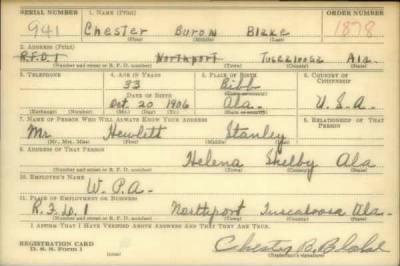 SERIAL NUMBER 1. NAME (Print) ORDER NUMBER
941 Chester Buron Blake 1878
(First) (Middle) (Last)
2. ADDRESS (Print)
R.F.D. 1 Northport Tuscaloosa Ala.
(Number and street or R. F. D. number) (Town) (County) (State)
3. TELEPHONE 4. AGE IN YEARS 5. PLACE OF BIRTH 6. COUNTRY OF CITIZENSHIP
33 Bibb
DATE OF BIRTH (Town or county)
Oct. 20 1906 Ala. U.S.A.
(Exchange) (Number) (Mo.) (Day) (Yr.) (State or country)
7. NAME OF PERSON WHO WILL ALWAYS KNOW YOUR ADDRESS 8. RELATIONSHIP OF THAT PERSON
Mr Hewlett Stanley
(Mr., Mrs., Miss) (First) (Middle) (Last)
9. ADDRESS OF THAT PERSON
Helena Shelby Ala
(Number and street or R. F. D. number) (Town) (County) (State)
10. EMPLOYER'S NAME
W.P.A.
11. PLACE OF EMPLOYMENT OR BUSINESS
R.F.D. 1 Northport Tuscaloosa Ala.
(Number and street or R. F. D. number) (Town) (County) (State)
I AFFIRM THAT I HAVE VERIFIED ABOVE ANSWERS AND THAT THEY ARE TRUE.
REGISTRATION CARD
D. S. S. Form 1 Chester B. Blake
(Registrant's signature)